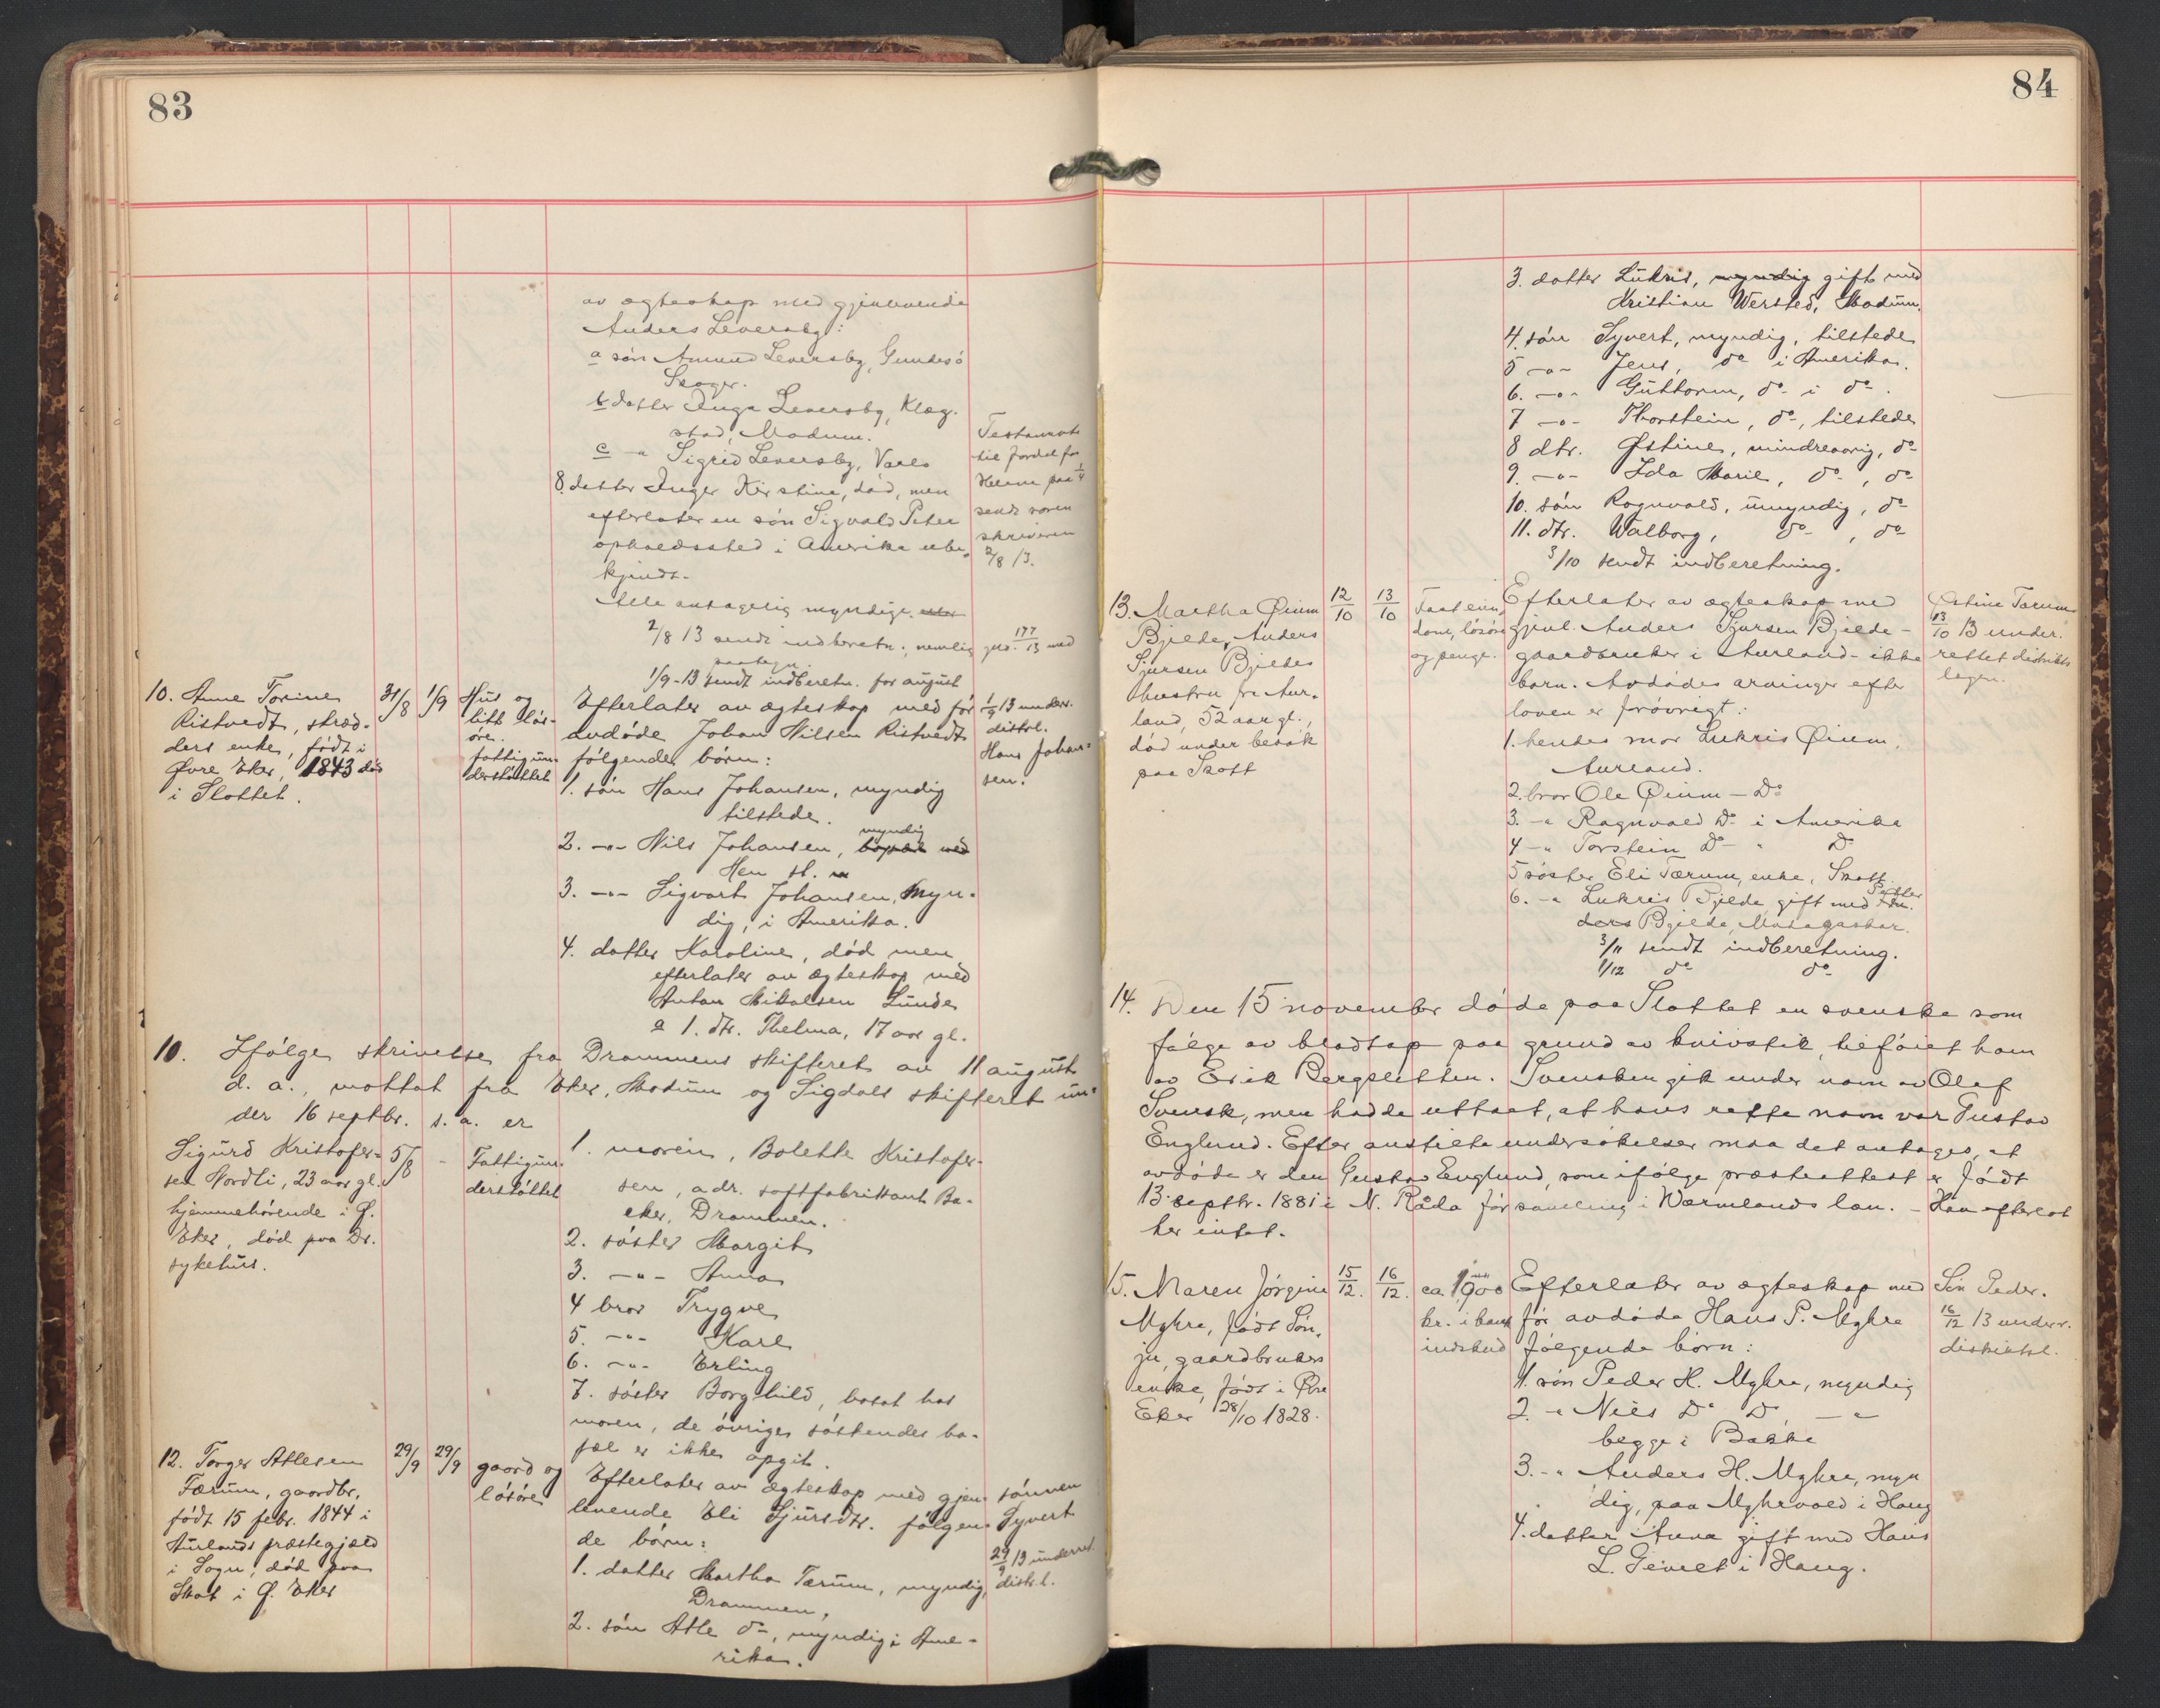 83
av ægteskap med gjenlevende
Anders Leversby:
a søn Amund Leversby, Gundesø
Skoger.
b datter Inga Leversby, Klæg-
stad, Modum.
c -"- Sigrid Leversby, Vares
8. datter Inger Kirstine, død, men
efterlater en søn Sigvald Peter
opholdssted i Amerika ube-
kjendt.
Alle antagelig myndige.
2/8 13 sendt indberetn.; nemlig
paategn.
1/9-13 sendt indberetn. for august
Testamente
til fordel for
sendt soren
skriveren
2/8 13.
10. Anne Torine
Ristvedt, skræd-
ders enke, født i
Øvre Eker, 1843 død
i Slottet.
31/8
1/9
Hus og
litt løs-
øre.
fattigun-
derstøttet
Efterlater av ægteskap med før
avdøde Johan Nilsen Ristvedt
følgende børn:
1. søn Hans Johansen, myndig
tilstede.
2. -"- Nils Johansen, myndig
Hen st.
3. -"- Sigvart Johansen, myn-
dig, i Amerika.
4. datter Karoline, død men
efterlater av ægteskap med
Anton Mikalsen Lunde
a 1. dtr. Thelma, 17 aar gl.
1/9 13 underr.
distrl.
Hans Johan-
sen.
10. Ifølge skrivelse fra Drammens skifteret av 11 august
d. a., mottat fra Eker, Modum og Sigdals skifteret un-
der 16 septbr. s. a. er
Sigurd Kristofer-
sen Nordli, 23 aar gl.
hjemmehørende i Ø.
Eker, død paa Dr.
sykehus.
5/8
-
Fattigun-
derstøttet
1. moren, Bolette Kristofer-
sen, adr. saftfabrikant Ba-
eker, Drammen.
2. søster Margit
3. -"- Anna
4 bror Trygve
5. -"- Karl
6. -"- Erling
7. søster Borghild, bosat hos
moren, de øvrige søskendes bo-
pæl er ikke opgit.
12. Torger Atlesen
Færum, gaardbr.,
født 15 febr. 1844 i
Aurlands præstegjæld
i Sogn, død paa
Skot i Ø. Eker
29/9
29/9
gaard og
løsøre
Efterlater av ægteskap med gjen-
levende Eli Sjursdtr. følgen-
de børn:
1. datter Martha Tærum, myndig,
Drammen,
2. søn Atle do, myndig i Ame-
rika.
sønnen
Syvert
29/9 13 underret.
distr.l.
84
3. datter Lukris, myndig gift med
Kristian Wersted, Modum.
4. søn Syvert, myndig, tilstede
5 -"- Jens, do i Amerika.
6. -"- Guttorm, do i do.
7 -"- Thorstein, do, tilstede
8 dtr. Østine, mindreaarig, do
9. -"- Ida Marie, do, do
10. søn Ragnvald, umyndig, do
11. dtr. Walborg, do, do
3/10 sendt indberetning.
13. Martha Øium
Bjelde, Anders
Sjursen Bjeldes
hustru fra Aur-
land, 52 aar gl.,
død under besøk
paa Skott
12/10
13/10
Fast eien-
dom, løsøre
og penge.
Efterlater av ægteskap med
gjenl. Anders Sjursen Bjelde -
gaardbruker i Aurland - ikke
barn. Avdødes arvinger efter
loven er forøvrigt:
1. hendes mor Lukris Øium,
Aurland.
2. bror Ole Øium - Do
3. -"- Ragnvald Do i Amerika
4 -"- Torstein Do " Do
5 søster Eli Tærum, enke, Skott.
6. -"- Lukris Bjelde, gift med Petter An-
ders Bjelde, Madagaskar.
3/11 sendt indberetning.
1/12 do do
Østine Tærum
13/10 13 under-
rettet distrikts
legen.
14. Den 15 november døde paa Slottet en svenske som
følge av blodtap paa grund av knivstik, tilføiet ham
av Erik Bergsletten. Svensken gik under navn av Olaf
Svensk, men hadde uttalt, at hans rette navn var Gustav
Englund. Efter anstilte undersøkelser maa det antages, at
avdøde er den Gustav Englund, som ifølge præsteattest er født
13 septbr. 1881 i N. Råda församling i Wärmlands län. - Han efterlot
her intet.
15. Maren Jørgine
Myhre, født Søn-
ju, gaardbrukers
enke, født i Øvre
Eker 28/10 1828.
15/12.
16/12.
ca 1900
kr. i bank
indskud
Efterlater av ægteskap med
før avdøde Hans P. Myhre
følgende børn:
1. søn Peder H. Myhre, myndig
2. -"- Niels Do Do, -"-
begge i Bakke
3. -"- Anders H. Myhre, myn
dig, paa Myhrvold i Haug
4. datter Anna gift med Hans
L. Gevelt i Haug.
Søn Peder.
16/12 13 underr.
distriktsl.